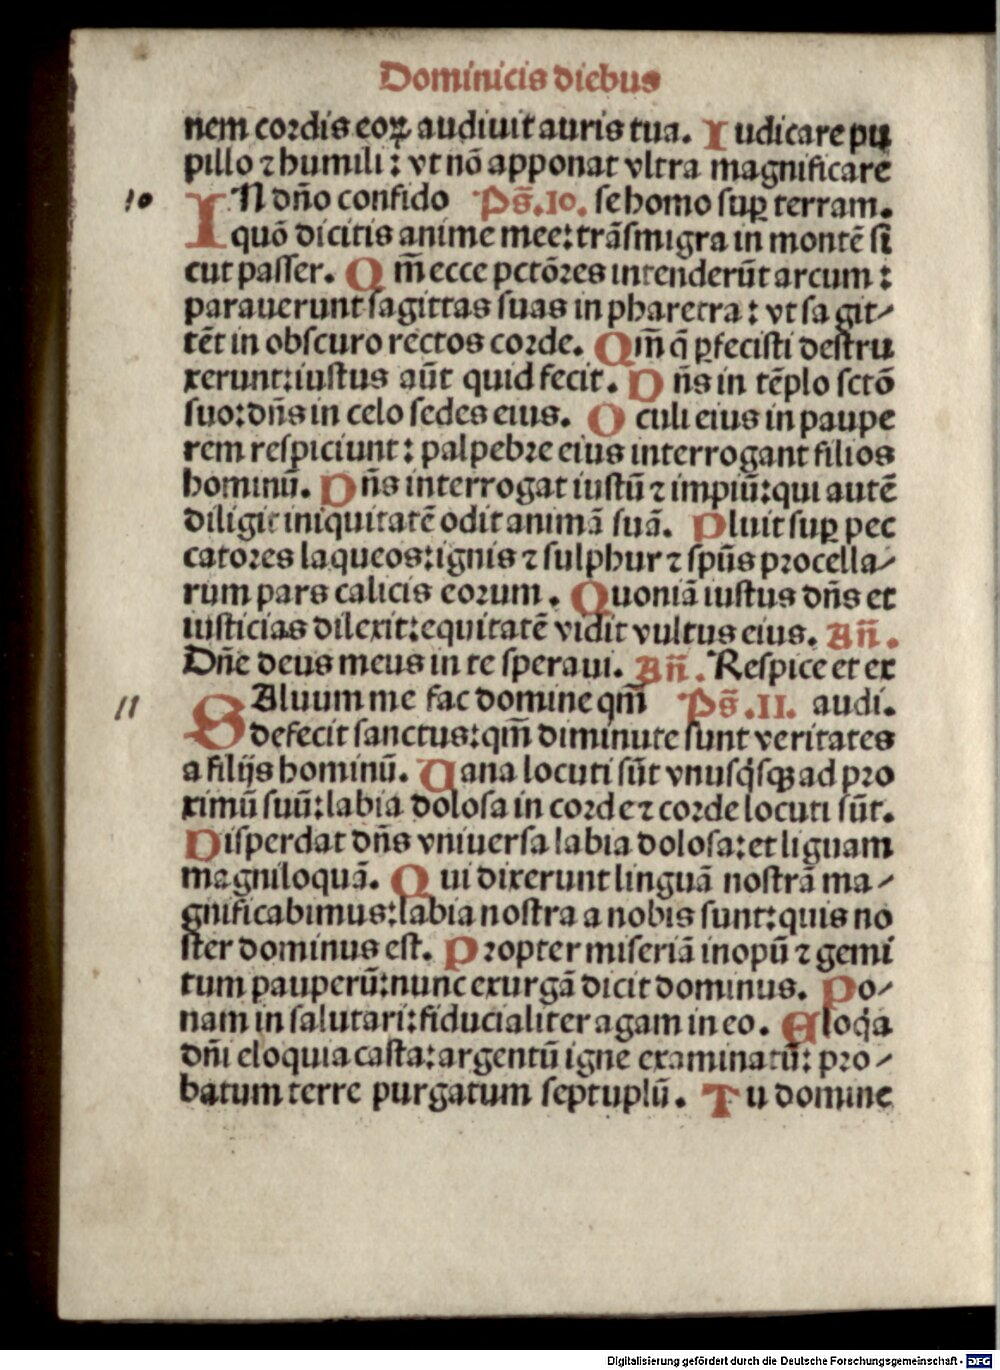 Dominicis diebus
nem cordis eoꝝ audiuit auris tua. Iudicare pu
pillo ⁊ humili: vt nō apponat vltra magnificare
10
IN dño confido Ps̄.10. se homo suꝑ terram.
quō dicitis anime mee: trāsmigra in montē si
cut passer. Qm̄ ecce pctōres intenderūt arcum:
parauerunt sagittas suas in pharetra: vt sagit⸗
tēt in obscuro rectos corde. Qm̄ q̄ ꝑfecisti destru
xerunt: iustus aūt quid fecit. Dñs in tēplo sctō
suo: dñs in celo sedes eius. Oculi eius in paupe
rem respiciunt: palpebre eius interrogant filios
hominū. Dñs interrogat iustū ⁊ impiū: qui autē
diligit iniquitatē odit animā suā. Pluit suꝑ pec
catores laqueos: ignis ⁊ sulphur ⁊ spūs procella⸗
rum pars calicis eorum. Quoniā iustus dñs et
iusticias dilexit: equitatē vidit vultus eius. Añ.
Dñe deus meus in te speraui. Añ. Respice et ex
11
SAluum me fac domine qm̄ Ps̄.11. audi.
defecit sanctus: qm̄ diminute sunt veritates
a filijs hominū. Uana locuti sūt vnusq̇sqꝫ ad pro
ximū suū: labia dolosa in corde ⁊ corde locuti sūt.
Disperdat dñs vniuersa labia dolosa: et liguam
magniloquā. Qui dixerunt linguā nostrā ma⸗
gnificabimus: labia nostra a nobis sunt: quis no
ster dominus est. Propter miseriā inopū ⁊ gemi
tum pauperū: nunc exurgā dicit dominus. Po⸗
nam in salutari: fiducialiter agam in eo. Eloq̇a
dñi eloquia casta: argentū igne examinatū: pro⸗
batum terre purgatum septuplū. Tu domine
Digitalisierung gefördert durch die Deutsche Forschungsgemeinschaft - DFG